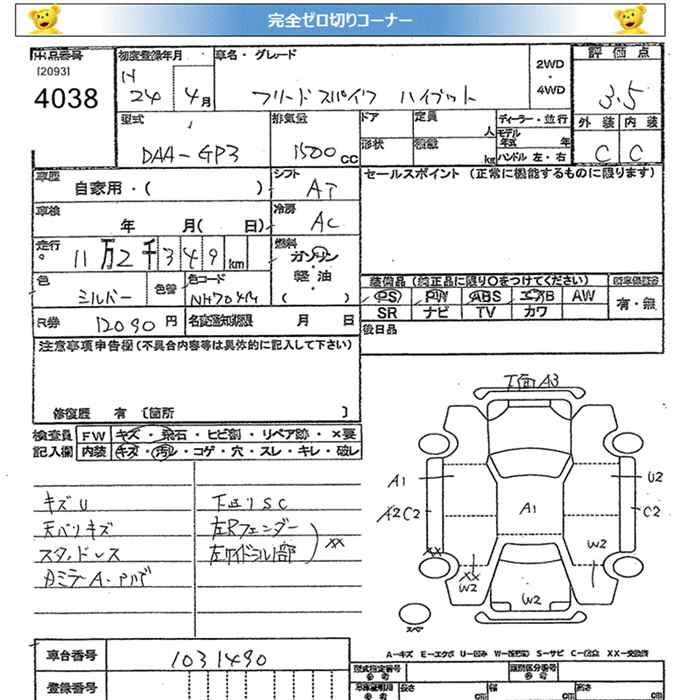 完全ゼロ切りコーナー
出品番号 初度登録年月 車名・グレード 2WD・4WD 評価点
[2093]
4038
H 24 4月 フリードスパイク ハイブリット 3.5
型式 排気量 ドア 定員 人 ディーラー・並行 外装 内装
DAA-GP3 1500cc 形状 積載 kg モデル年式 年 ハンドル 左・右 C C
車歴 自家用・( ) シフト AT セールスポイント (正常に機能するものに限ります)
車検 年 月( 日) 冷房 AC
走行 11万2千349km 燃料 ガソリン・軽油・( )
色 シルバー 色替 色コード NH704M 装備品 (純正品に限り○をつけてください)
PS PW ABS エアB AW 有・無
SR ナビ TV カワ
R券 12090円 名変通知期限 月 日 後日品
注意事項申告欄(不具合内容等は具体的に記入して下さい)
修復歴 有 [箇所 ]
検査員記入欄 FW キズ・飛石・ヒビ割・リペア跡・×要
内装 キズ・汚レ・コゲ・穴・スレ・キレ・破レ
キズU 下廻りSC
天バリキズ 左Rフェンダー
スタッドレス 左サイドシル部 XX
A3
A1 U2
A2 C2 A1 C2
XX W2
XX W2
W2
スペア
A-キズ E-エクボ U-凹み S-サビ XX-交換済
車台番号 1031490
登録番号
型式指定番号 参考 類別区分番号 参考
長さ cm 幅 cm 高さ cm